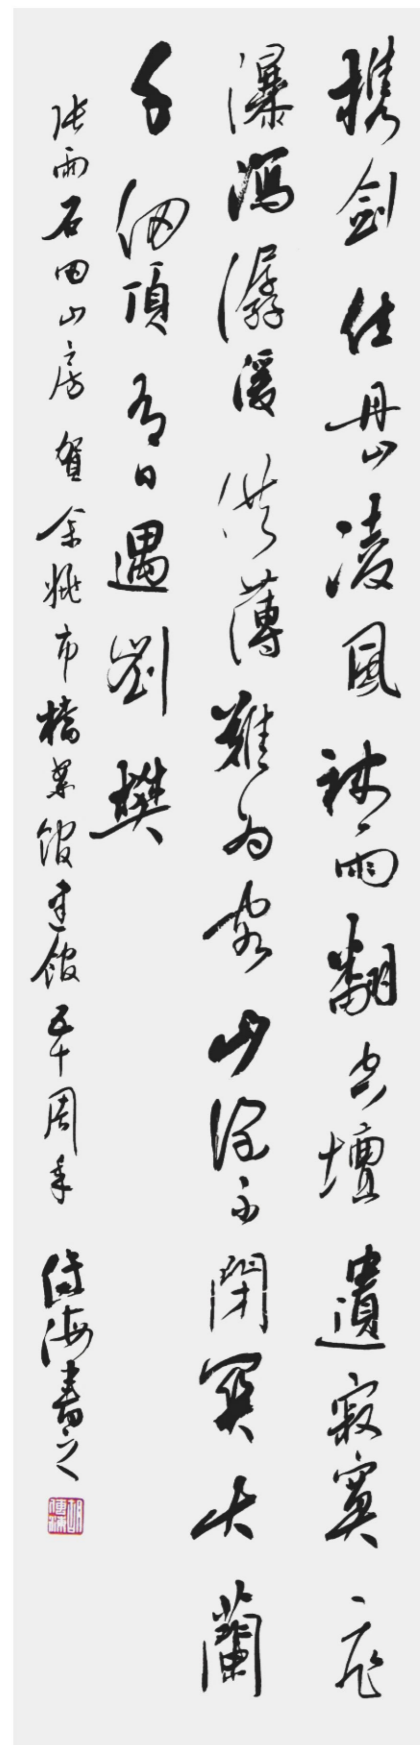 携劍住丹山凌風袂雨翻空壇遺寂寞飛
瀑瀉潺湲供薄難為客山深不閉関大蘭
千仞頂有日遇劉樊
張雨石田山房賀余姚市檔案館建館五十周年傳海書之